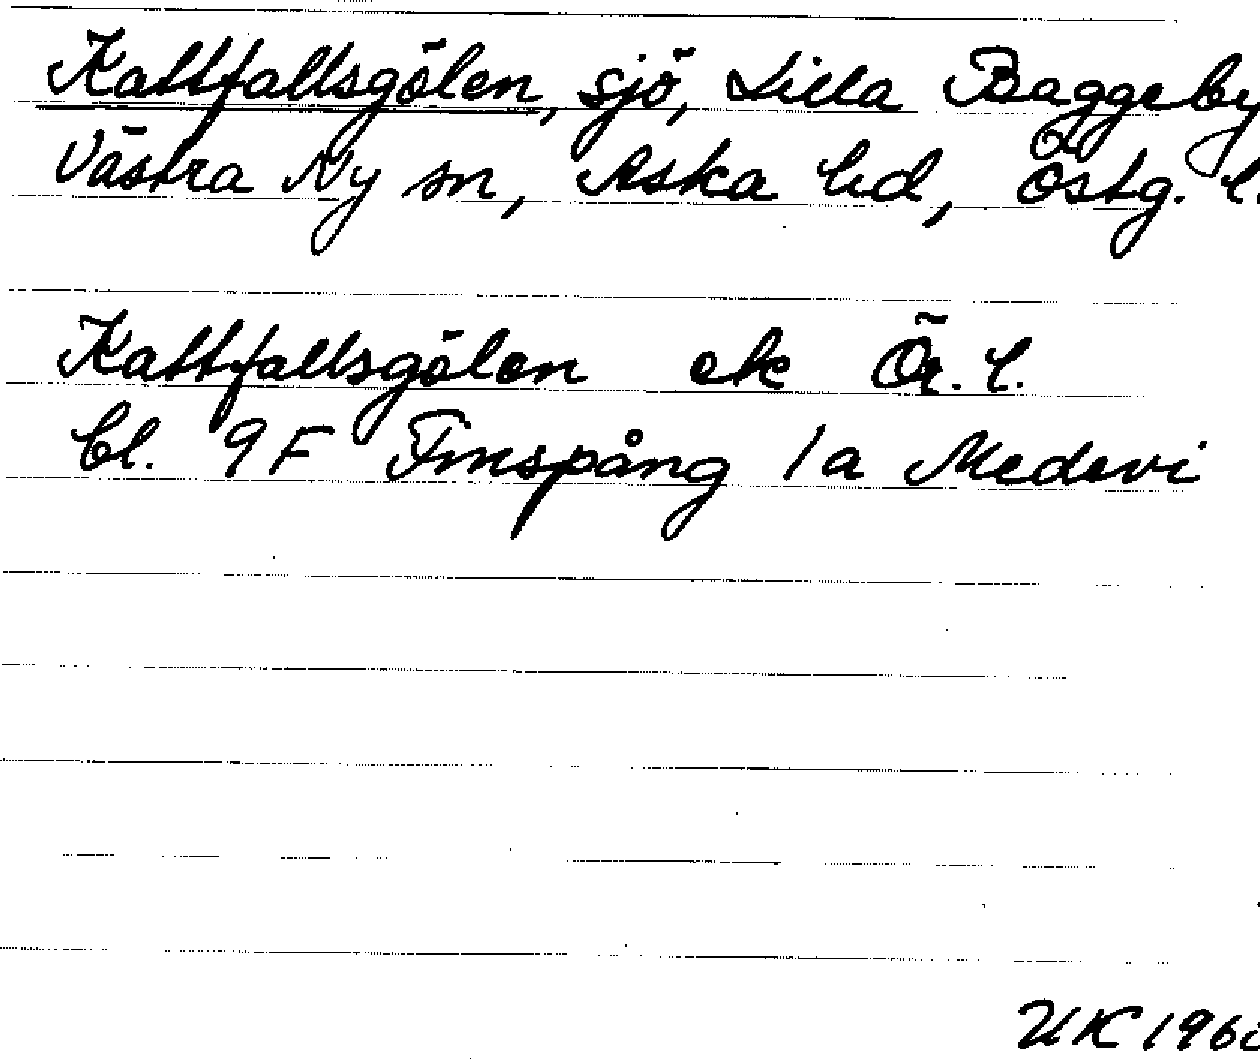 Kattfallsgölen, sjö, Lilla Baggeby
Västra Ny sn, Aska hd, Östg. l.
Kattfallsgölen ek Ör. l.
bl. 9F Finspång 1a Medevi
UK 196